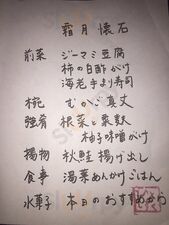 霜月懐石
前菜 ジーマミ豆腐
柿の白酢がけ
海老手まり寿司
椀 むかご真丈
強肴 根菜と
柚子味噌がけ
揚物 秋鮭揚げ出し
食事 湯葉あんかけごはん
水菓子 本日のおすすめから